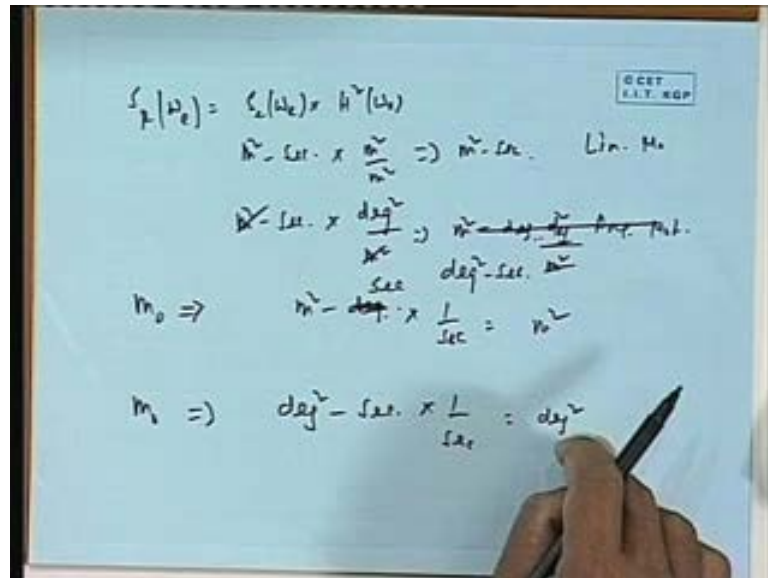 © CET
I.I.T. KGP
S_R(ω_e) = S_z(ω_e) × H²(ω_e)
m² - sec. × m²/m² => m² - sec. Lin. Mo
m² - sec. × deg²/m² => m²
deg² - sec.
m₀ => m² - sec × 1/sec = m²
m₀ => deg² - sec. × 1/sec = deg²